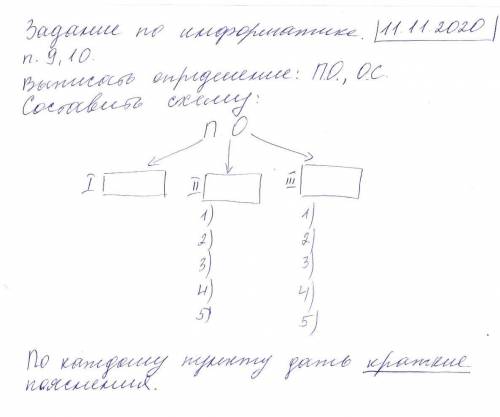 Задание по информатике. 11.11.2020
п. 9, 10.
Выписать определение: П.О., О.С.
Составить схему:
П О
I II III
1) 1)
2) 2)
3) 3)
4) 4)
5) 5)
По каждому пункту дать краткие
пояснения.